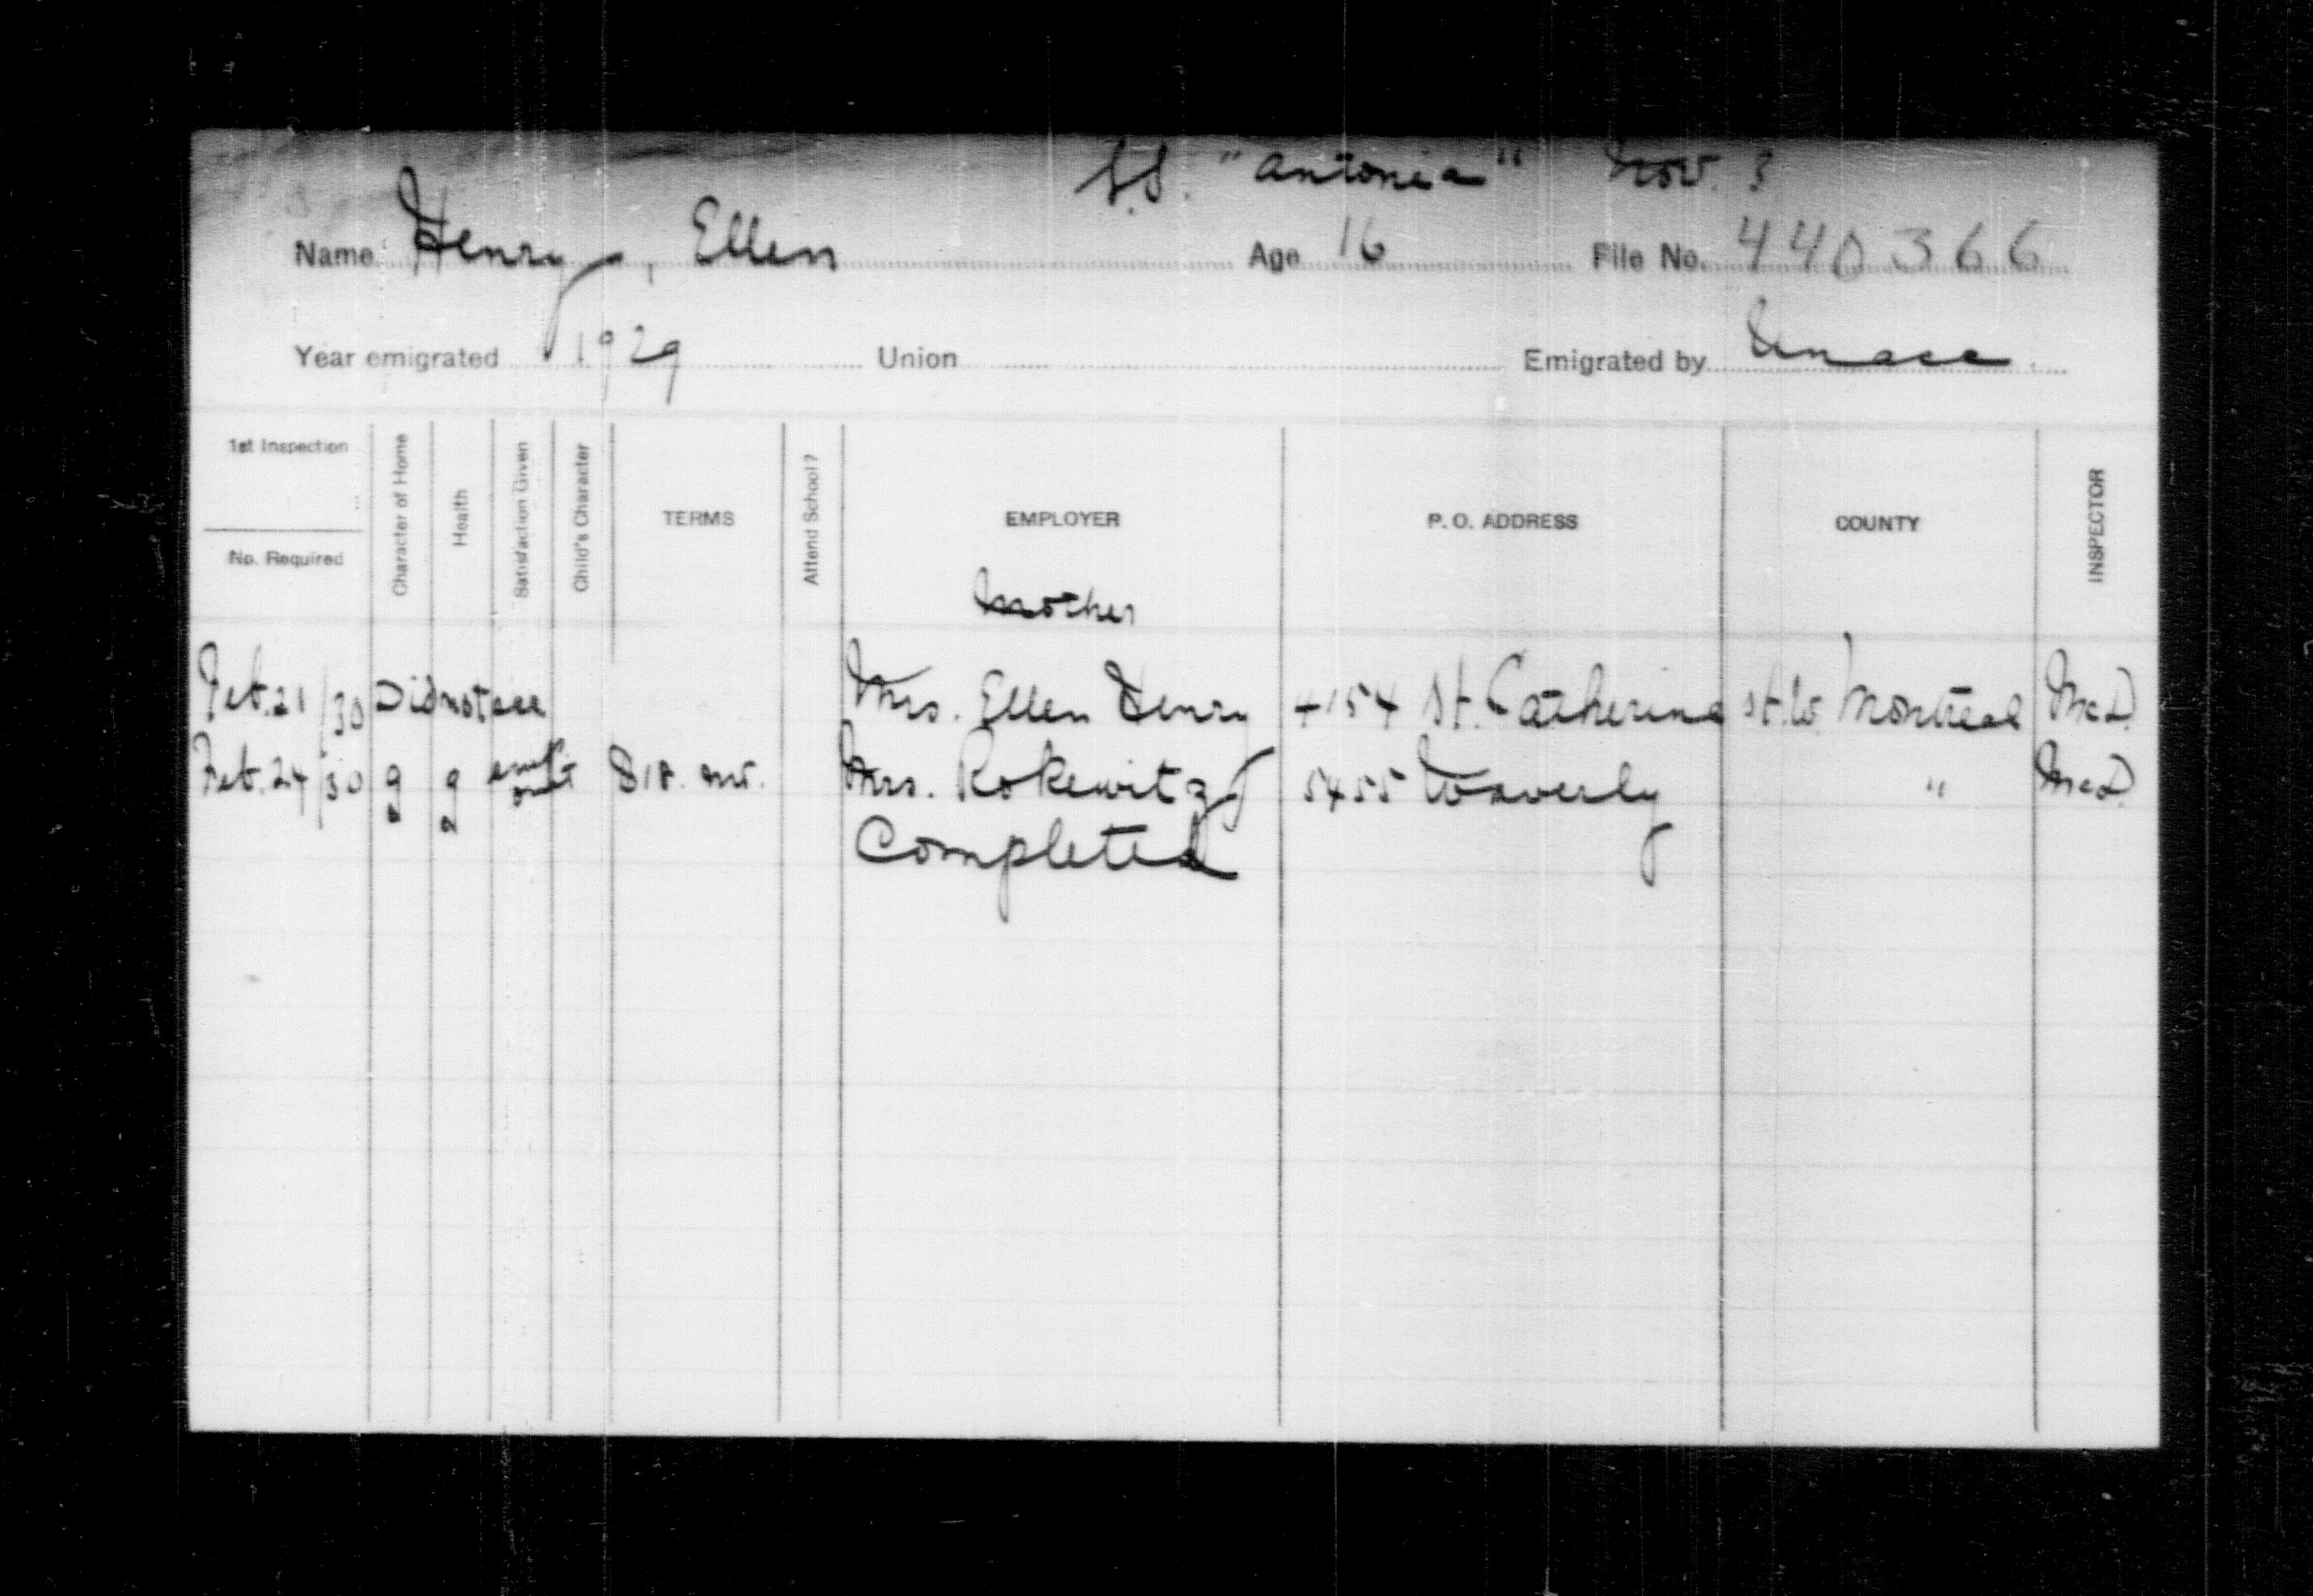 S.S. "Antonia" Nov. 3
Name Henry, Ellen Age 16 File No. 440366
Year emigrated 1929 Union Emigrated by Unacc
1st Inspection
No. Required
Character of Home
Health
Satisfaction Given
Child's Character
TERMS
Attend School?
EMPLOYER
P. O. ADDRESS
COUNTY
INSPECTOR
Mother
Feb. 21/30 Did not see Mrs. Ellen Henry 4154 St. Catherine St. W. Montreal McD.
Feb. 24/30 g g $18. Mrs. Rokewitz 5455 Waverly " McD.
Completed